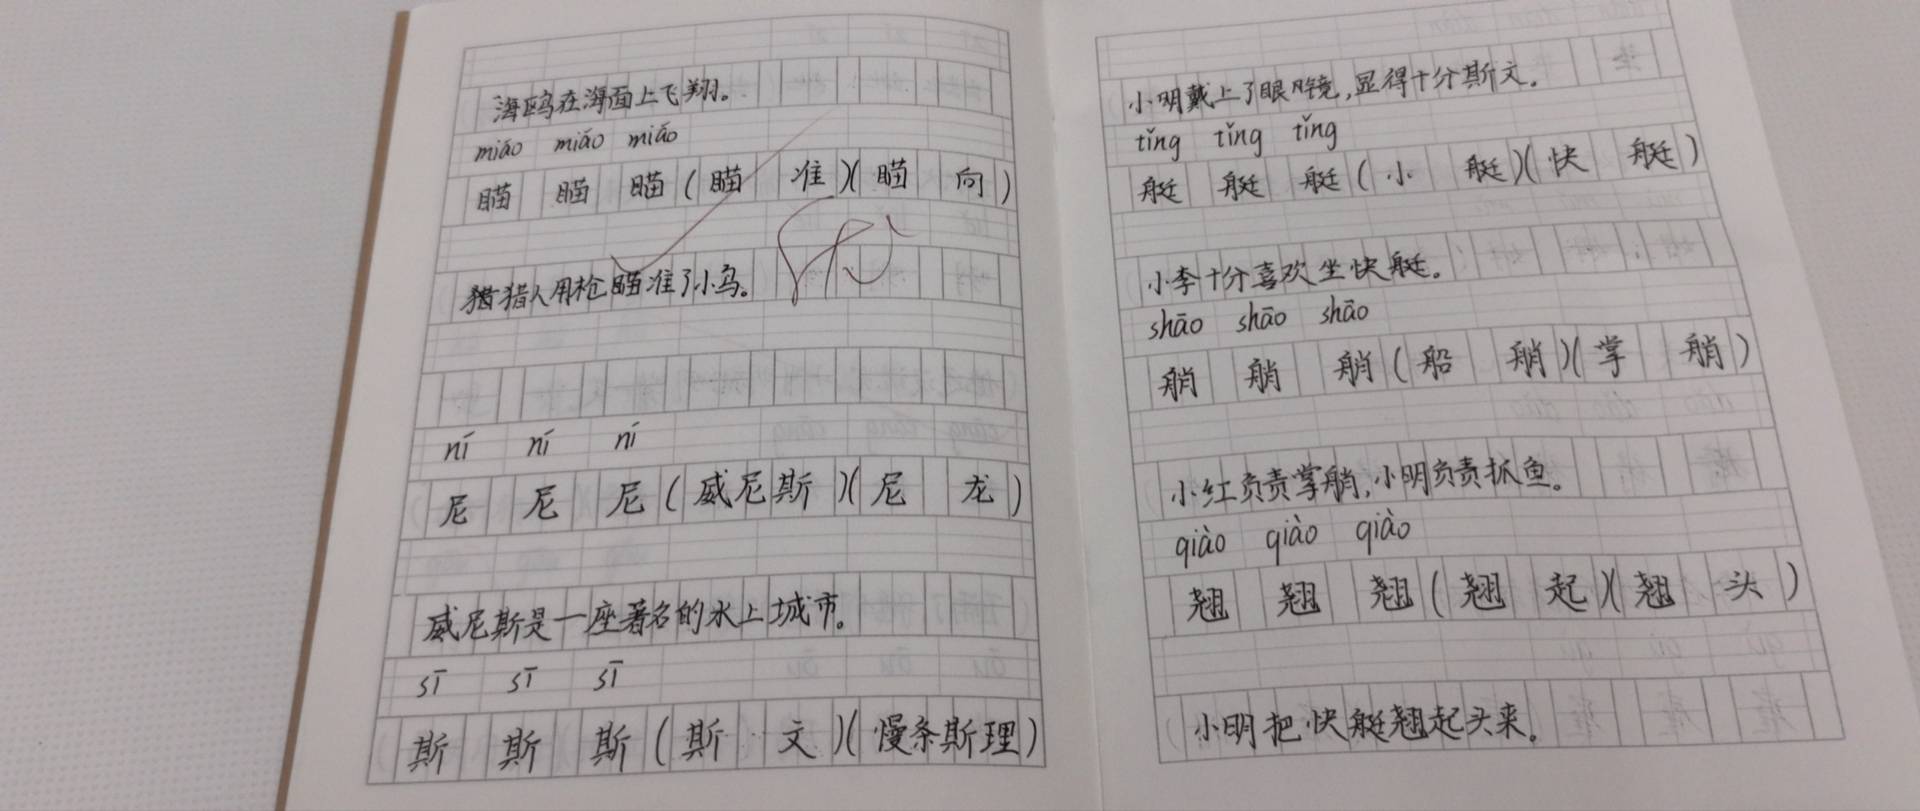 海鸥在海面上飞翔。
miáo miáo miáo
瞄 瞄 瞄(瞄准)(瞄向)
猎猎人用枪瞄准了小鸟。
ní ní ní
尼 尼 尼(威尼斯)(尼龙)
威尼斯是一座著名的水上城市。
sī sī sī
斯 斯 斯(斯文)(慢条斯理)
小明戴上了眼镜,显得十分斯文。
tǐng tǐng tǐng
艇 艇 艇(小艇)(快艇)
小李十分喜欢坐快艇。
shāo shāo shāo
艄 艄 艄(船艄)(掌艄)
小红负责掌艄,小明负责抓鱼。
qiào qiào qiào
翘 翘 翘(翘起)(翘头)
小明把快艇翘起头来。